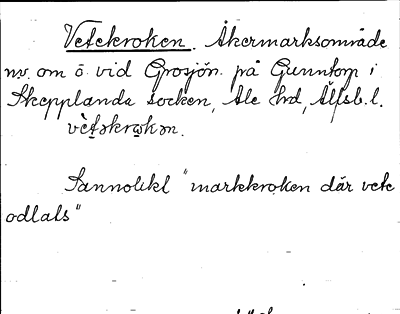 Vetekroken. Åkermarksområde
nv. om ö. vid Grosjön. på Gunntorp i
Skepplanda socken, Ale hd, Älfsb. l.
Sannolikl "markkroken där vete
odlals"